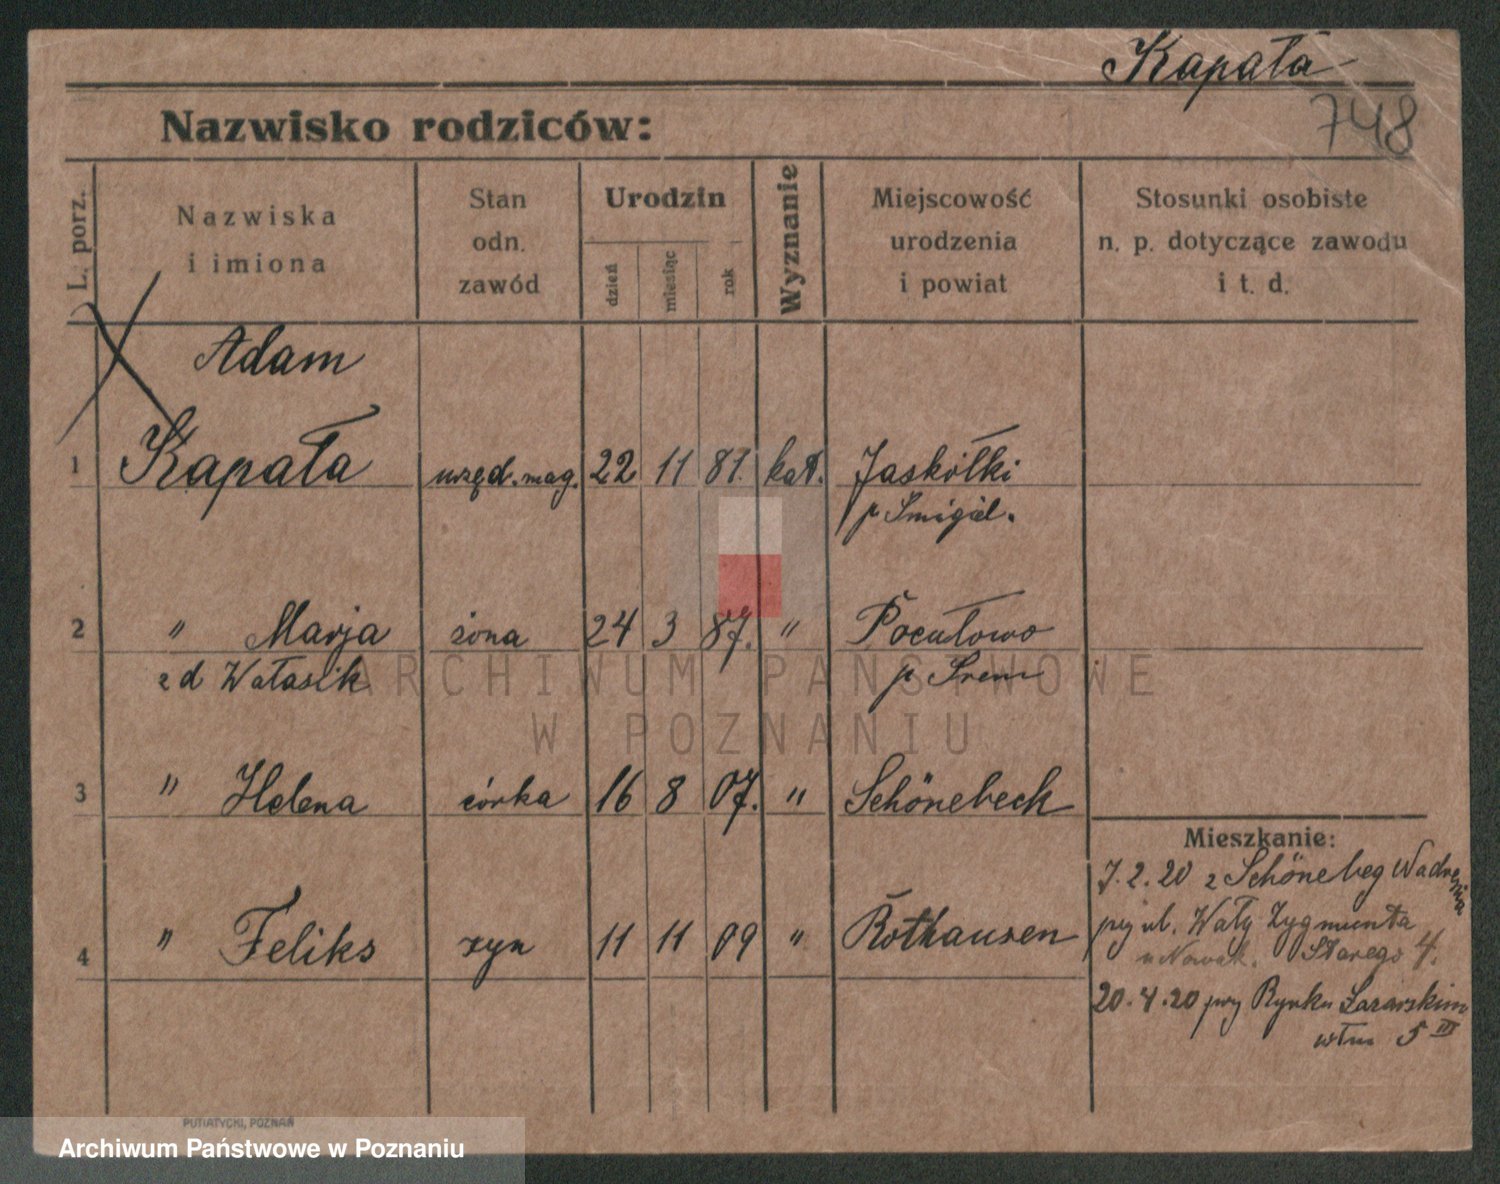 Kapała
748
Nazwisko rodziców:
L. porz.
Nazwiska
i imiona
Stan
odn.
zawód
Urodzin
dzień
miesiąc
rok
Wyznanie
Miejscowość
urodzenia
i powiat
Stosunki osobiste
n. p. dotyczące zawodu
i t. d.
Adam
1 Kapała urzęd. mag. 22 11 81. kat. Jaskółki
p. Śmigiel.
2 " Marja żona 24 3 87. "
z d Wałasik p Śrem
3 " Helena córka 16 8 07. " Schönebeck
4 " Feliks syn 11 11 09 " Rothausen
Mieszkanie:
7.2.20 z Schönebeg
przy ul. Wały Zygmunta
u Nowak. Starego 4.
20.4.20 przy Rynku Łazarskim
5 III
ARCHIWUM PAŃSTWOWE
W POZNANIU
PUTIATYCKI, POZNAŃ
Archiwum Państwowe w Poznaniu